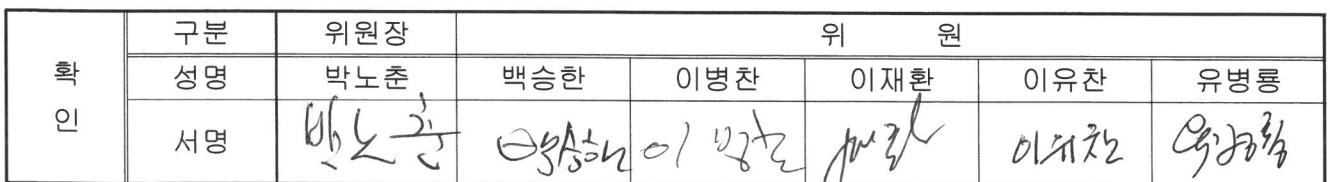 구분 위원장 위 원
확 성명 박노춘 백승한 이병찬 이재환 이유찬 유병룡
인 서명 박노춘 백승한 이병찬 이유찬 유병룡